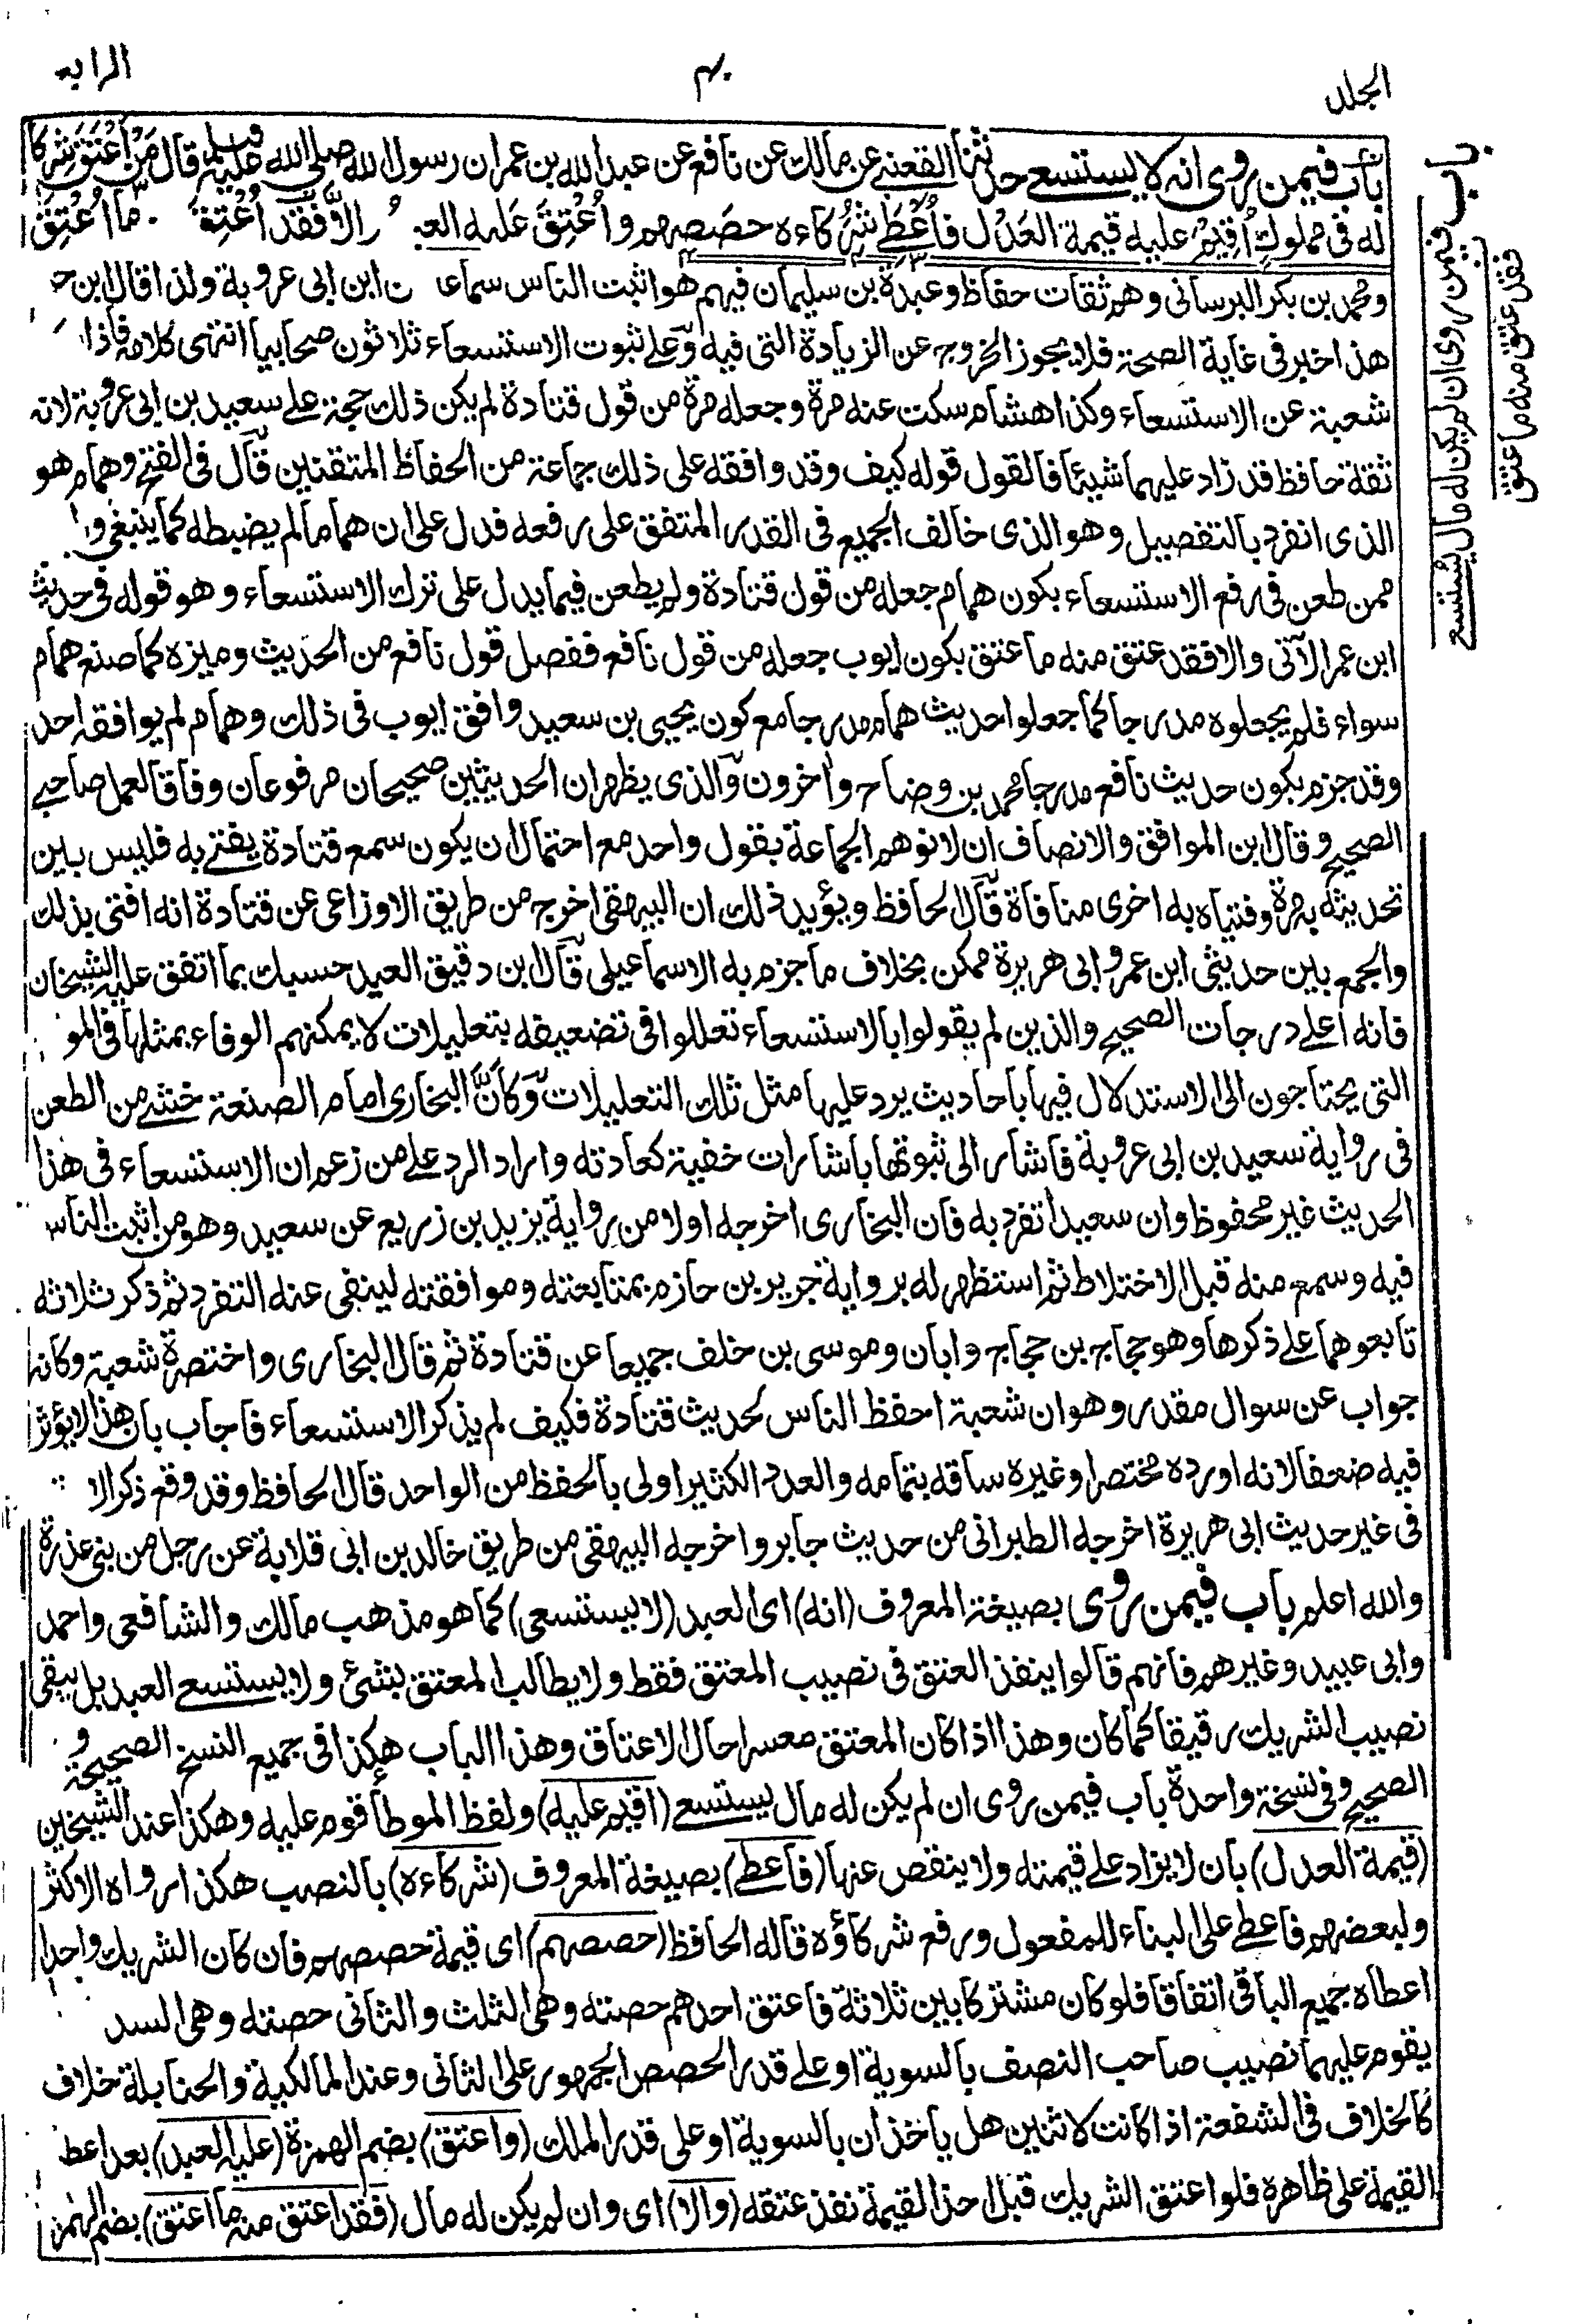 الجلد
٤٠
الرابع
باب فيمن روى انه لا يستسعى حدثنا القعنبي عن مالك عن نافع عن عبد الله بن عمر ان رسول الله صلى الله عليه وسلم قال مَنْ اَعْتَقَ شِرْكًا
له فى مملوك اُقِيْمَ عليه قيمة العَدْل فاَعْطَى شُرَكاءه حصَصهم واُعْتِقَ عَليه العبد والاّ فَقَدْ اُعْتِقَ ما اُعْتِقَ
ومحمد بن بكر البرسانى وهم ثقات حفاظ وعبدة بن سليمان فيهم هو اثبت الناس سماعا ابن ابى عروبة ولذا قال ابن
هذا خبر فى غاية الصحة فلا يجوز الخروج عن الزيادة التى فيه وعلى ثبوت الاستسعاء ثلاثون صحابيا انتهى كلامه فاذا
شعبة عن الاستسعاء وكذا هشام سكت عنه مرة وجعله مرة من قول قتادة لم يكن ذلك حجة على سعيد بن ابى عروبة لانه
ثقة حافظ قد زاد عليهما شيئا فالقول قوله كيف وقد وافقه على ذلك جماعة من الحفاظ المتقنين قال فى الفتح وهمام هو
الذى انفرد بالتفصيل وهو الذى خالف الجميع فى القدر المتفق على رفعه فدل على ان هماما لم يضبطه كما ينبغى
ممن طعن فى رفع الاستسعاء بكون همام جعله من قول قتادة ولم يطعن فيما يدل على ترك الاستسعاء وهو قوله فى حديث
ابن عمر الآتى والا فقد عتق منه ما عتق بكون ايوب جعله من قول نافع ففصل قول نافع من الحديث وميزه كما صنع همام
سواء فلم يجعلوه مدرجا كما جعلوا حديث همام مدرجا مع كون يحيى بن سعيد وافق ايوب فى ذلك وهمام لم يوافقه احد
وقد جزم بكون حديث نافع مدرجا محمد بن وضاح واخرون والذى يظهر ان الحديثين صحيحان مرفوعان وفاقا لعمل صاحبى
الصحيح وقال ابن الموافق والانصاف ان لا نوهم الجماعة بقول واحد مع احتمال ان يكون سمع قتادة يفتى به فليس بين
تحديثه به مرة وفتياه به اخرى منافاة قال الحافظ ويؤيد ذلك ان البيهقى اخرج من طريق الاوزاعى عن قتادة انه افتى بذلك
والجمع بين حديثى ابن عمر وابى هريرة ممكن بخلاف ما جزم به الاسماعيلى قال ابن دقيق العيد حسبك بما اتفق عليه الشيخان
فانه اعلى درجات الصحيح والذين لم يقولوا بالاستسعاء تعللوا فى تضعيفه بتعليلات لا يمكنهم الوفاء بمثلها فى
التى يحتاجون الى الاستدلال فيها باحاديث يرد عليها مثل تلك التعليلات وكأنّ البخارى امام الصنعة خشى من الطعن
فى رواية سعيد بن ابى عروبة فاشار الى ثبوتها باشارات خفية كعادته واراد الرد على من زعم ان الاستسعاء فى هذا
الحديث غير محفوظ وان سعيدا تفرد به فان البخارى اخرجه اولا من رواية يزيد بن زريع عن سعيد وهو من اثبت الناس
فيه وسمع منه قبل الاختلاط ثم استظهر له برواية جرير بن حازم بمتابعته وموافقته لينفى عنه التفرد ثم ذكر ثلاثه
تابعوهما على ذكرها وهو حجاج بن حجاج وابان وموسى بن خلف جميعا عن قتادة ثم قال البخارى واختصره شعبة وكانه
جواب عن سوال مقدر وهو ان شعبة احفظ الناس لحديث قتادة فكيف لم يذكر الاستسعاء فاجاب بان هذا لا يؤثر
فيه ضعفا لانه اورده مختصرا وغيره ساقه بتمامه والعدد الكثير اولى بالحفظ من الواحد قال الحافظ وقد وقع ذكر
فى غير حديث ابى هريرة اخرجه الطبرانى من حديث جابر واخرجه البيهقى من طريق خالد بن ابى قلابة عن رجل من بنى عذرة
والله اعلم باب فيمن روى بصيغة المعروف (انه) اى العبد (لا يستسعى) كما هو مذهب مالك والشافعى واحمد
وابى عبيد وغيرهم فانهم قالوا ينفذ العتق فى نصيب المعتق فقط ولا يطالب المعتق بشئ ولا يستسعى العبد بل يبقى
نصيب الشريك رقيقا كما كان وهذا اذا كان المعتق معسرا حال الاعتاق وهذا الباب هكذا فى جميع النسخ الصحيحة و
الصحيح وفى نسخة واحدة باب فيمن روى ان لم يكن له مال يستسعى (اقيم عليه) ولفظ الموطأ قوم عليه وهكذا عند الشيخين
(قيمة العدل) بان لا يزاد على قيمته ولا ينقص عنها (فاعطى) بصيغة المعروف (شركاءه) بالنصب هكذا رواه الاكثر
ولبعضهم فاعطى على البناء للمفعول ورفع شركاؤه قاله الحافظ (حصصهم) اى قيمة حصصهم فان كان الشريك واحدا
اعطاه جميع الباقى اتفاقا فلو كان مشتركا بين ثلاثة فاعتق احدهم حصته وهى الثلث والثانى حصته وهى السد
يقوم عليهما نصيب صاحب النصف بالسوية او على قدر الحصص الجمهور على الثانى وعند المالكية والحنابلة خلاف
كالخلاف فى الشفعة اذا كانت لاثنين هل يأخذان بالسوية او على قدر الملك (واعتق) بضم الهمزة (عليه العبد) بعد اعط
القيمة على ظاهره فلو اعتق الشريك قبل اخذ القيمة نفذ عتقه (والا) اى وان لم يكن له مال (فقد اعتق منه ما اعتق) بضم الهمز
باب فيمن روى ان لم يكن له مال يستسعى
فقد عتق منه ما عتق